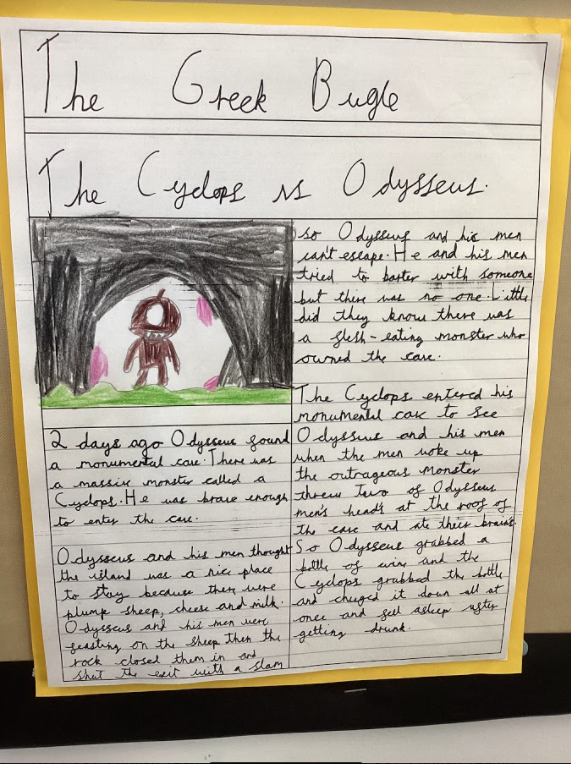 The Greek Bugle
The Cyclops vs Odysseus.
2 days ago Odysseus found
a monumental cave. There was
a massive monster called a
Cyclops. He was brave enough
to enter the cave.
Odysseus and his men thought
the island was a nice place
to stay because there were
plump sheep, cheese and milk.
Odysseus and his men were
feasting on the sheep then the
rock closed them in and
shut the exit with a slam
so Odysseus and his men
can't escape. He and his men
tried to barter with someone
but there was no one. Little
did they know there was
a flesh-eating monster who
owned the cave.
The Cyclops entered his
monumental cave to see
Odysseus and his men
when the men woke up
the outrageous monster
threw two of Odysseus
men's heads at the roof of
the cave and ate their brains
So Odysseus grabbed a
bottle of wine and the
Cyclops grabbed the bottle
and chuged it down all at
once and fell asleep after
getting drunk.